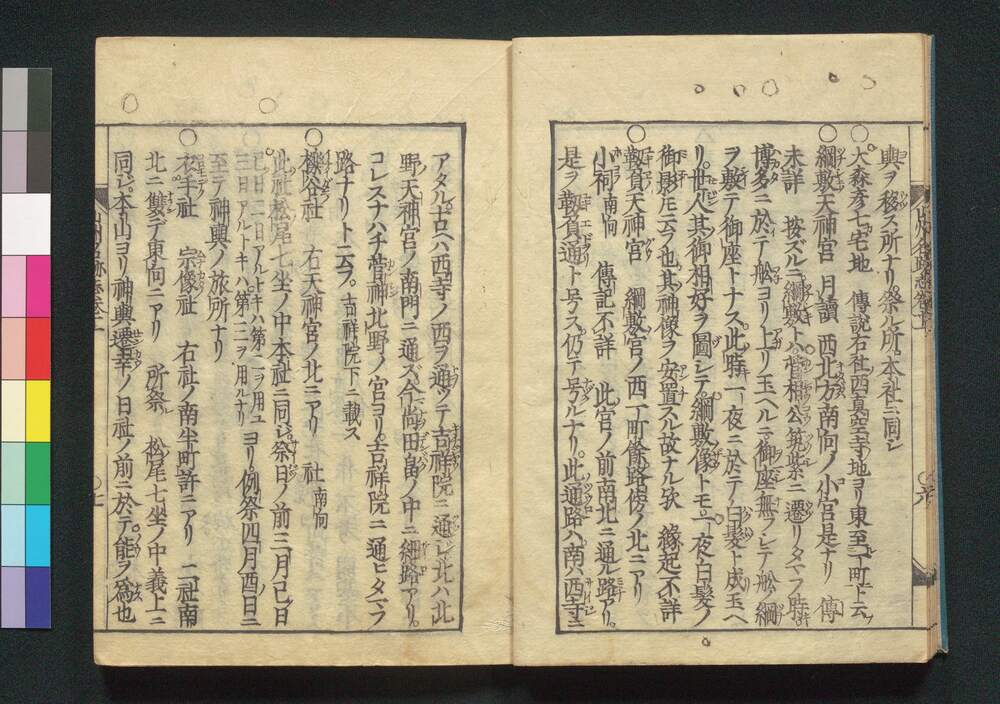 輿ヲ移ス所ナリ。祭ル所本社ニ同シ
○大森彦七宅地 傳説右社西真空寺地ヨリ東至一丁町ト云
○綱敷天神宮 月讀 西北方南向ノ小宮是ナリ 傳
未詳 按ズルニ綱敷トハ菅相公筑紫ニ遷リタマフ時
博多ニ於テ舩ヨリ上リ玉ヘルニ御座無フシテ舩ノ綱
ヲ敷テ御座トナス。此時一夜ニ於テ白髪ト成玉ヘ
リ。世人其御相好ヲ圖シテ綱敷像トモ一夜白髪ノ
御影トモ云フ也其神像ヲ安置スル故ナル欤 縁起不詳
○靱負天神宮 綱敷宮ノ西一丁餘路傍ノ北ニアリ
小祠南向 傳記不詳 此宮ノ前南北ニ通ル路アリ。
是ヲ靱負通ト号ス仍テ号ルナリ。此通路ハ南ハ西寺ニ
アタル古ヘハ西寺ノ西ヲ通ツテ吉祥院ニ通シ北ハ北
野天神宮ノ南門ニ通ズ今尚田畠ノ中ニ細路アリ。
コレスナハチ菅神北野ノ宮ヨリ吉祥院ニ通ヒタマフ
路ナリト云フ。吉祥院下ニ載ス
○櫟谷社 右天神宮ノ北ニアリ 社南向
此社松尾七坐ノ中本社ニ同シ。祭日ノ前三月已日
已日二日アルトキハ第二ヲ用ユ三日アルトキハ第二ヲ用ルナリ ヨリ。例祭四月酉日ニ
至テ神輿ノ旅所ナリ
○衣手社 宗像社 右社ノ南半町許ニアリ 二社南
北ニ雙デ東向ニアリ 所祭 松尾七坐ノ中義上ニ
同シ。本山ヨリ神輿遷幸ノ日社ノ前ニ於テ能ヲ為也